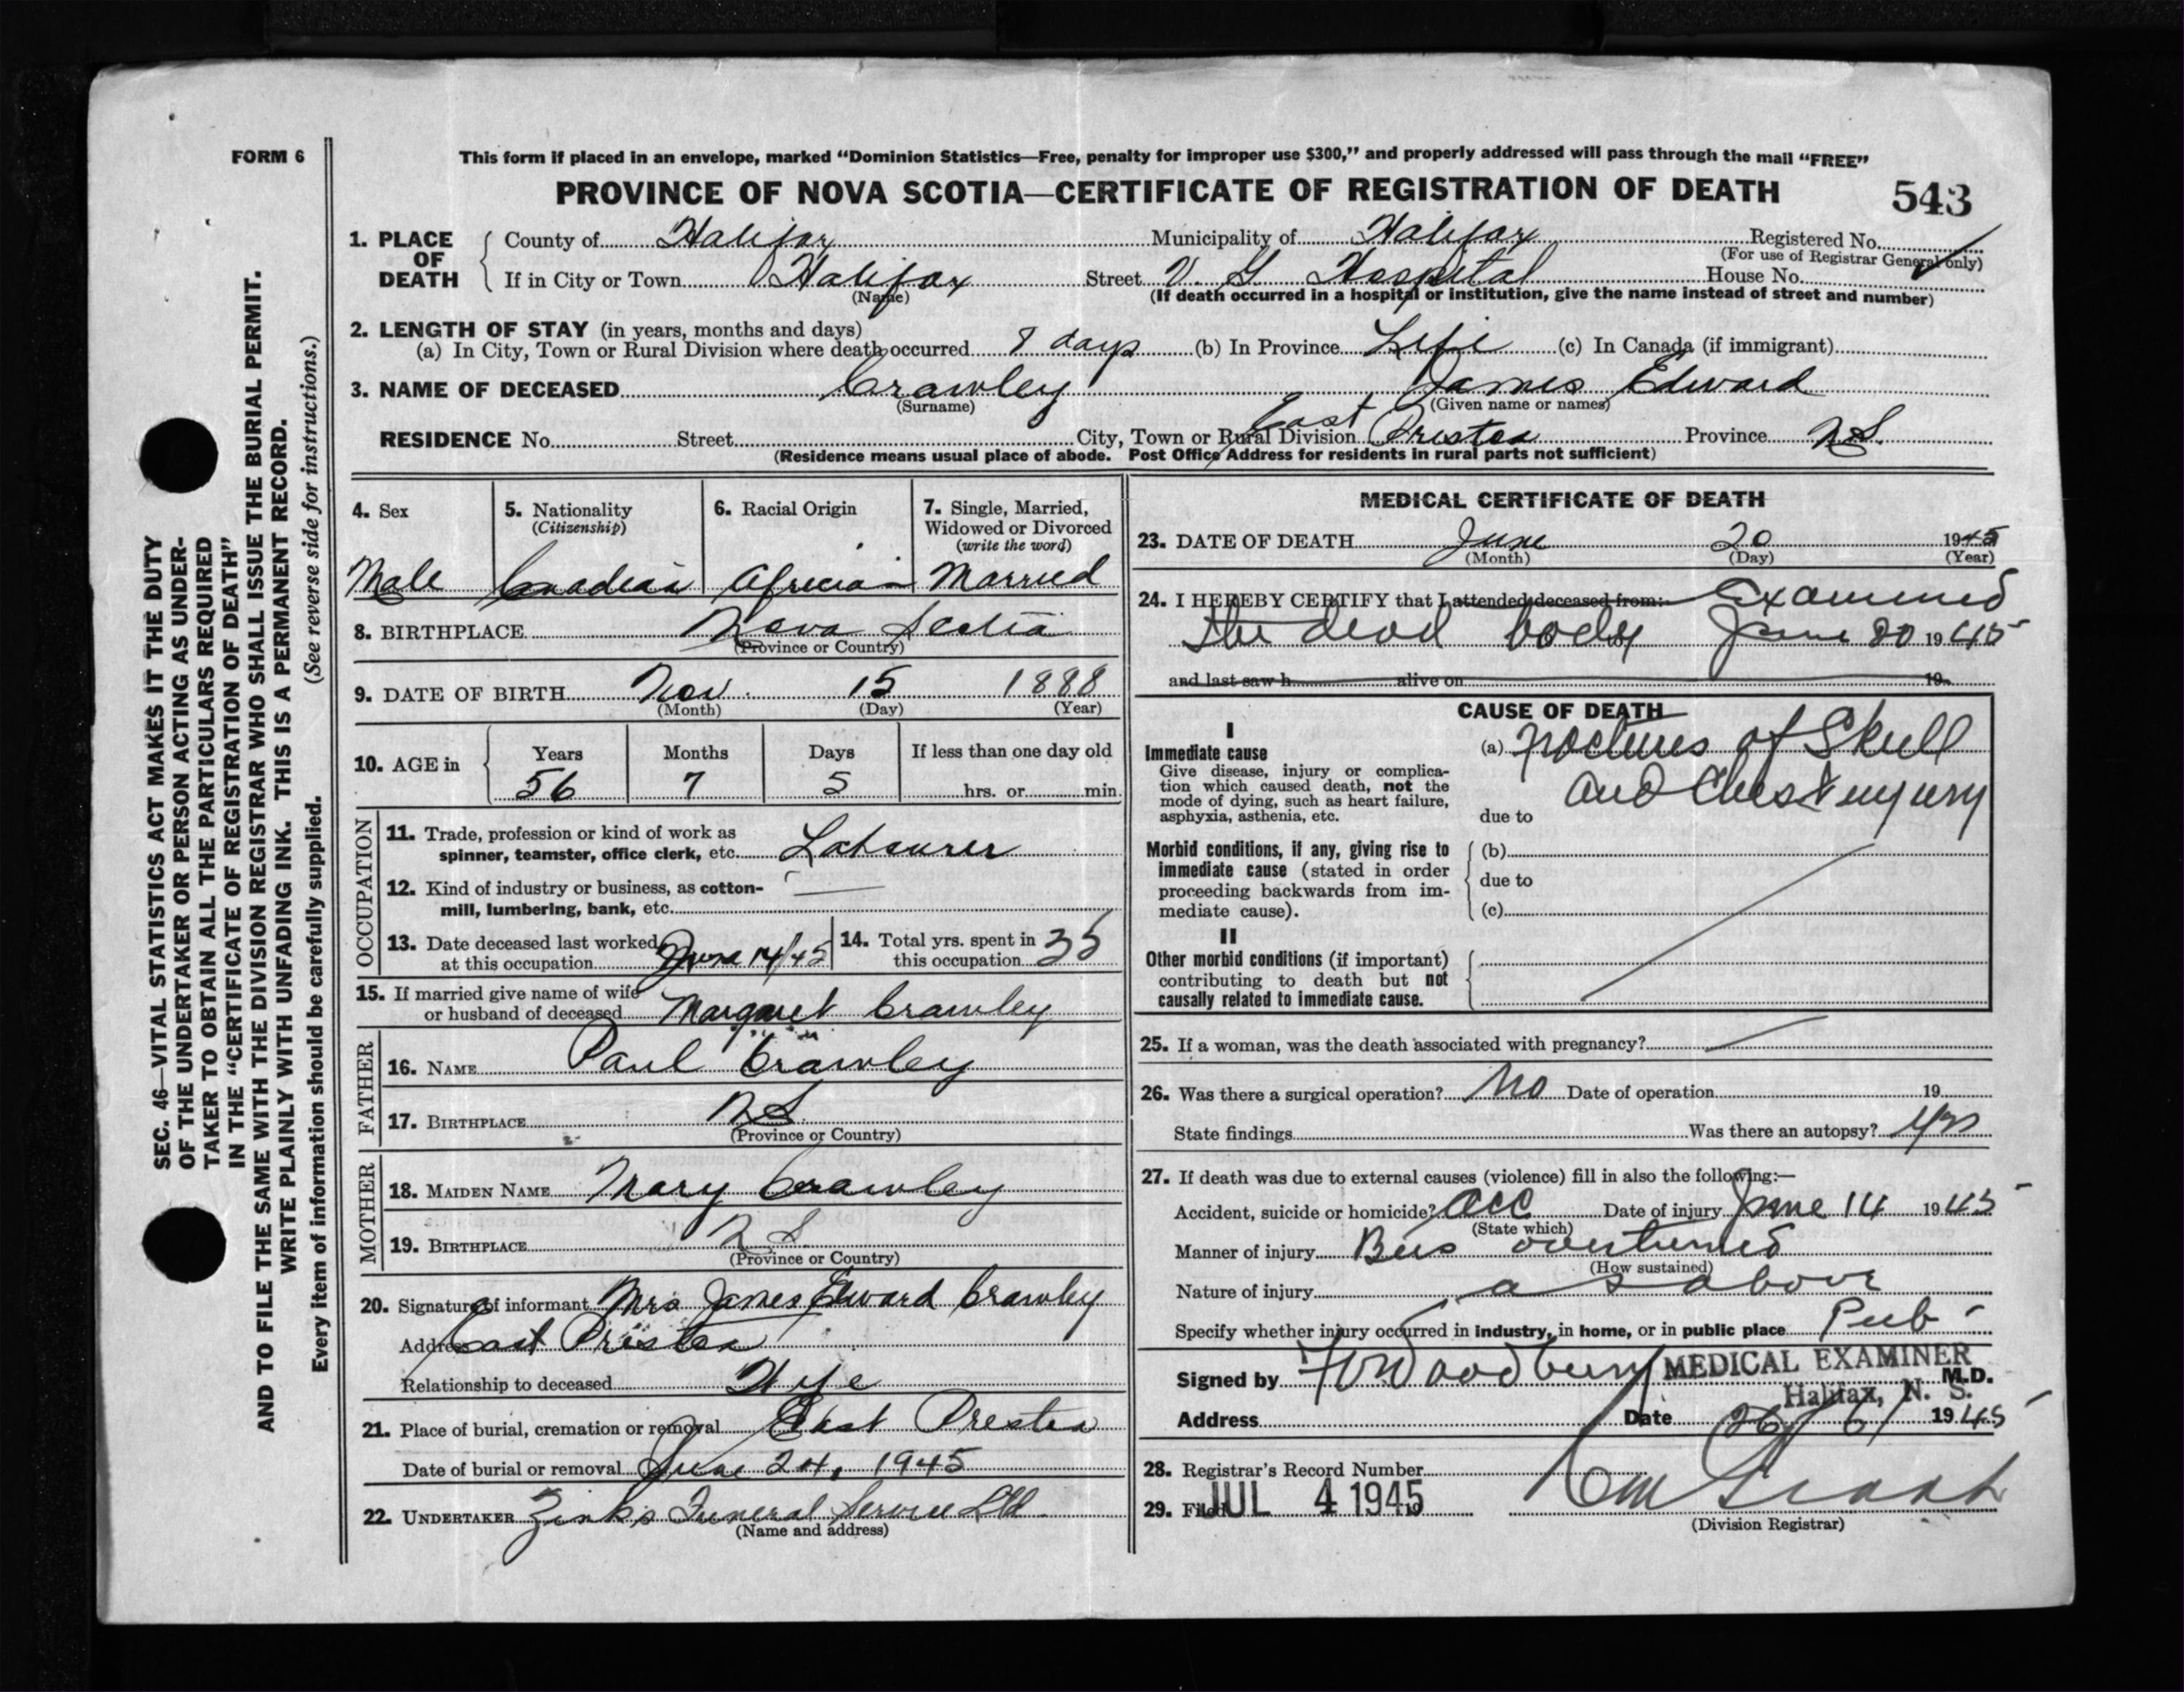 FORM 6
This form if placed in an envelope, marked “Dominion Statistics—Free, penalty for improper use $300,” and properly addressed will pass through the mail “FREE”
PROVINCE OF NOVA SCOTIA—CERTIFICATE OF REGISTRATION OF DEATH
543
1. PLACE OF DEATH
County of Halifax Municipality of Halifax Registered No.
(For use of Registrar General only)
If in City or Town Halifax Street V. G. Hospital House No.
(Name) (If death occurred in a hospital or institution, give the name instead of street and number)
2. LENGTH OF STAY (in years, months and days)
(a) In City, Town or Rural Division where death occurred 8 days (b) In Province Life (c) In Canada (if immigrant)
3. NAME OF DECEASED Crawley James Edward
(Surname) (Given name or names)
RESIDENCE No. Street City, Town or Rural Division East Preston Province N.S.
(Residence means usual place of abode. Post Office Address for residents in rural parts not sufficient)
4. Sex
Male
5. Nationality
(Citizenship)
Canadian
6. Racial Origin
African
7. Single, Married,
Widowed or Divorced
(write the word)
Married
8. BIRTHPLACE Nova Scotia
(Province or Country)
9. DATE OF BIRTH Nov. 15 1888
(Month) (Day) (Year)
10. AGE in Years Months Days If less than one day old
56 7 5 hrs. or min.
OCCUPATION
11. Trade, profession or kind of work as
spinner, teamster, office clerk, etc. Labourer
12. Kind of industry or business, as cotton-
mill, lumbering, bank, etc.
13. Date deceased last worked
at this occupation June 14/45
14. Total yrs. spent in
this occupation 35
15. If married give name of wife
or husband of deceased Margaret Crawley
FATHER
16. NAME Paul Crawley
17. BIRTHPLACE N.S.
(Province or Country)
MOTHER
18. MAIDEN NAME Mary Crawley
19. BIRTHPLACE N.S.
(Province or Country)
20. Signature of informant Mrs James Edward Crawley
Address East Preston
Relationship to deceased Wife
21. Place of burial, cremation or removal East Preston
Date of burial or removal June 24, 1945
22. UNDERTAKER Zinks Funeral Service Ltd.
(Name and address)
MEDICAL CERTIFICATE OF DEATH
23. DATE OF DEATH June 20 1945
(Month) (Day) (Year)
24. I HEREBY CERTIFY that I attended deceased from: Examined
the dead body June 20 1945
and last saw h alive on 19
CAUSE OF DEATH
I
Immediate cause
Give disease, injury or complica-
tion which caused death, not the
mode of dying, such as heart failure,
asphyxia, asthenia, etc.
(a) Fractures of Skull
and Chest injury
due to
Morbid conditions, if any, giving rise to
immediate cause (stated in order
proceeding backwards from im-
mediate cause).
(b)
due to
(c)
II
Other morbid conditions (if important)
contributing to death but not
causally related to immediate cause.
25. If a woman, was the death associated with pregnancy?
26. Was there a surgical operation? No Date of operation 19
State findings Was there an autopsy? yes
27. If death was due to external causes (violence) fill in also the following:—
Accident, suicide or homicide? Acc Date of injury June 14 1945
(State which)
Manner of injury Bus overturned
(How sustained)
Nature of injury as above
Specify whether injury occurred in industry, in home, or in public place Pub
Signed by Woodbury MEDICAL EXAMINER M.D.
Halifax, N. S.
Address Date 26/6/ 1945
28. Registrar's Record Number
29. Filed JUL 4 1945
(Division Registrar)
SEC. 46—VITAL STATISTICS ACT MAKES IT THE DUTY
OF THE UNDERTAKER OR PERSON ACTING AS UNDER-
TAKER TO OBTAIN ALL THE PARTICULARS REQUIRED
IN THE “CERTIFICATE OF REGISTRATION OF DEATH”
AND TO FILE THE SAME WITH THE DIVISION REGISTRAR WHO SHALL ISSUE THE BURIAL PERMIT.
WRITE PLAINLY WITH UNFADING INK. THIS IS A PERMANENT RECORD.
Every item of information should be carefully supplied. (See reverse side for instructions.)